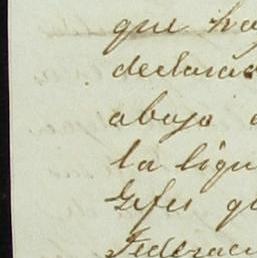 que ha
declarac
abajo
la ligu
Gefes q
Federaci